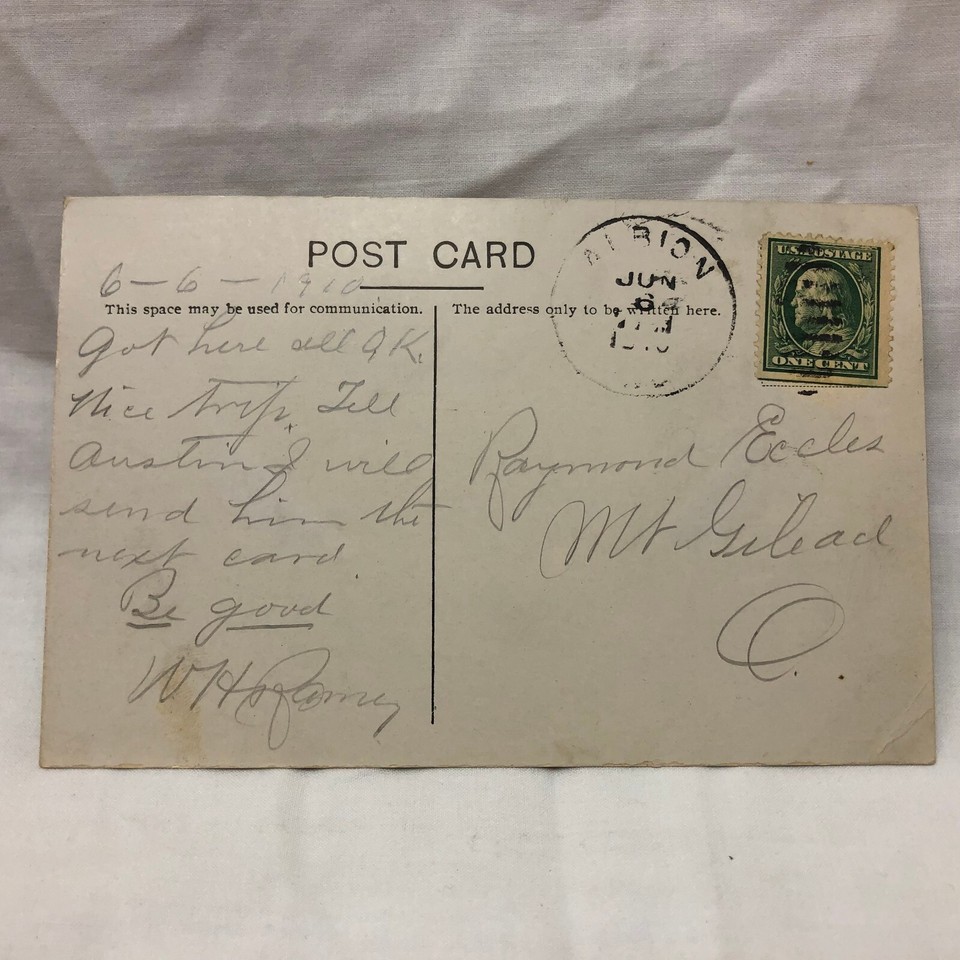 POST CARD
6-6-1910
This space may be used for communication.
Got here all O K.
Nice trip. Tell
Austin I will
send him the
next card.
Be good
W H
The address only to be written here.
ALBION
JUN
6
1910
U.S. POSTAGE
ONE CENT
Raymond Eccles
Mt Gilead
O.